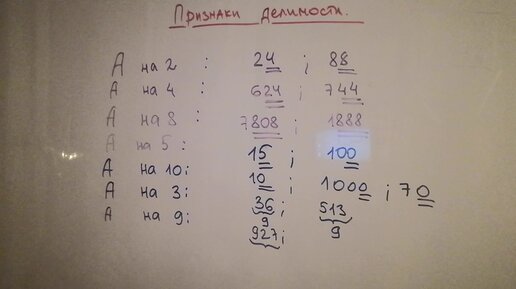 Признаки делимости.
А на 2 : 24 ; 88
А на 4 : 624 ; 744
А на 8 : 7808 ; 1888
А на 5 : 15 ; 100
А на 10: 10 ; 1000 ; 70
А на 3: 36 ; 513
9 9
А на 9: 927;